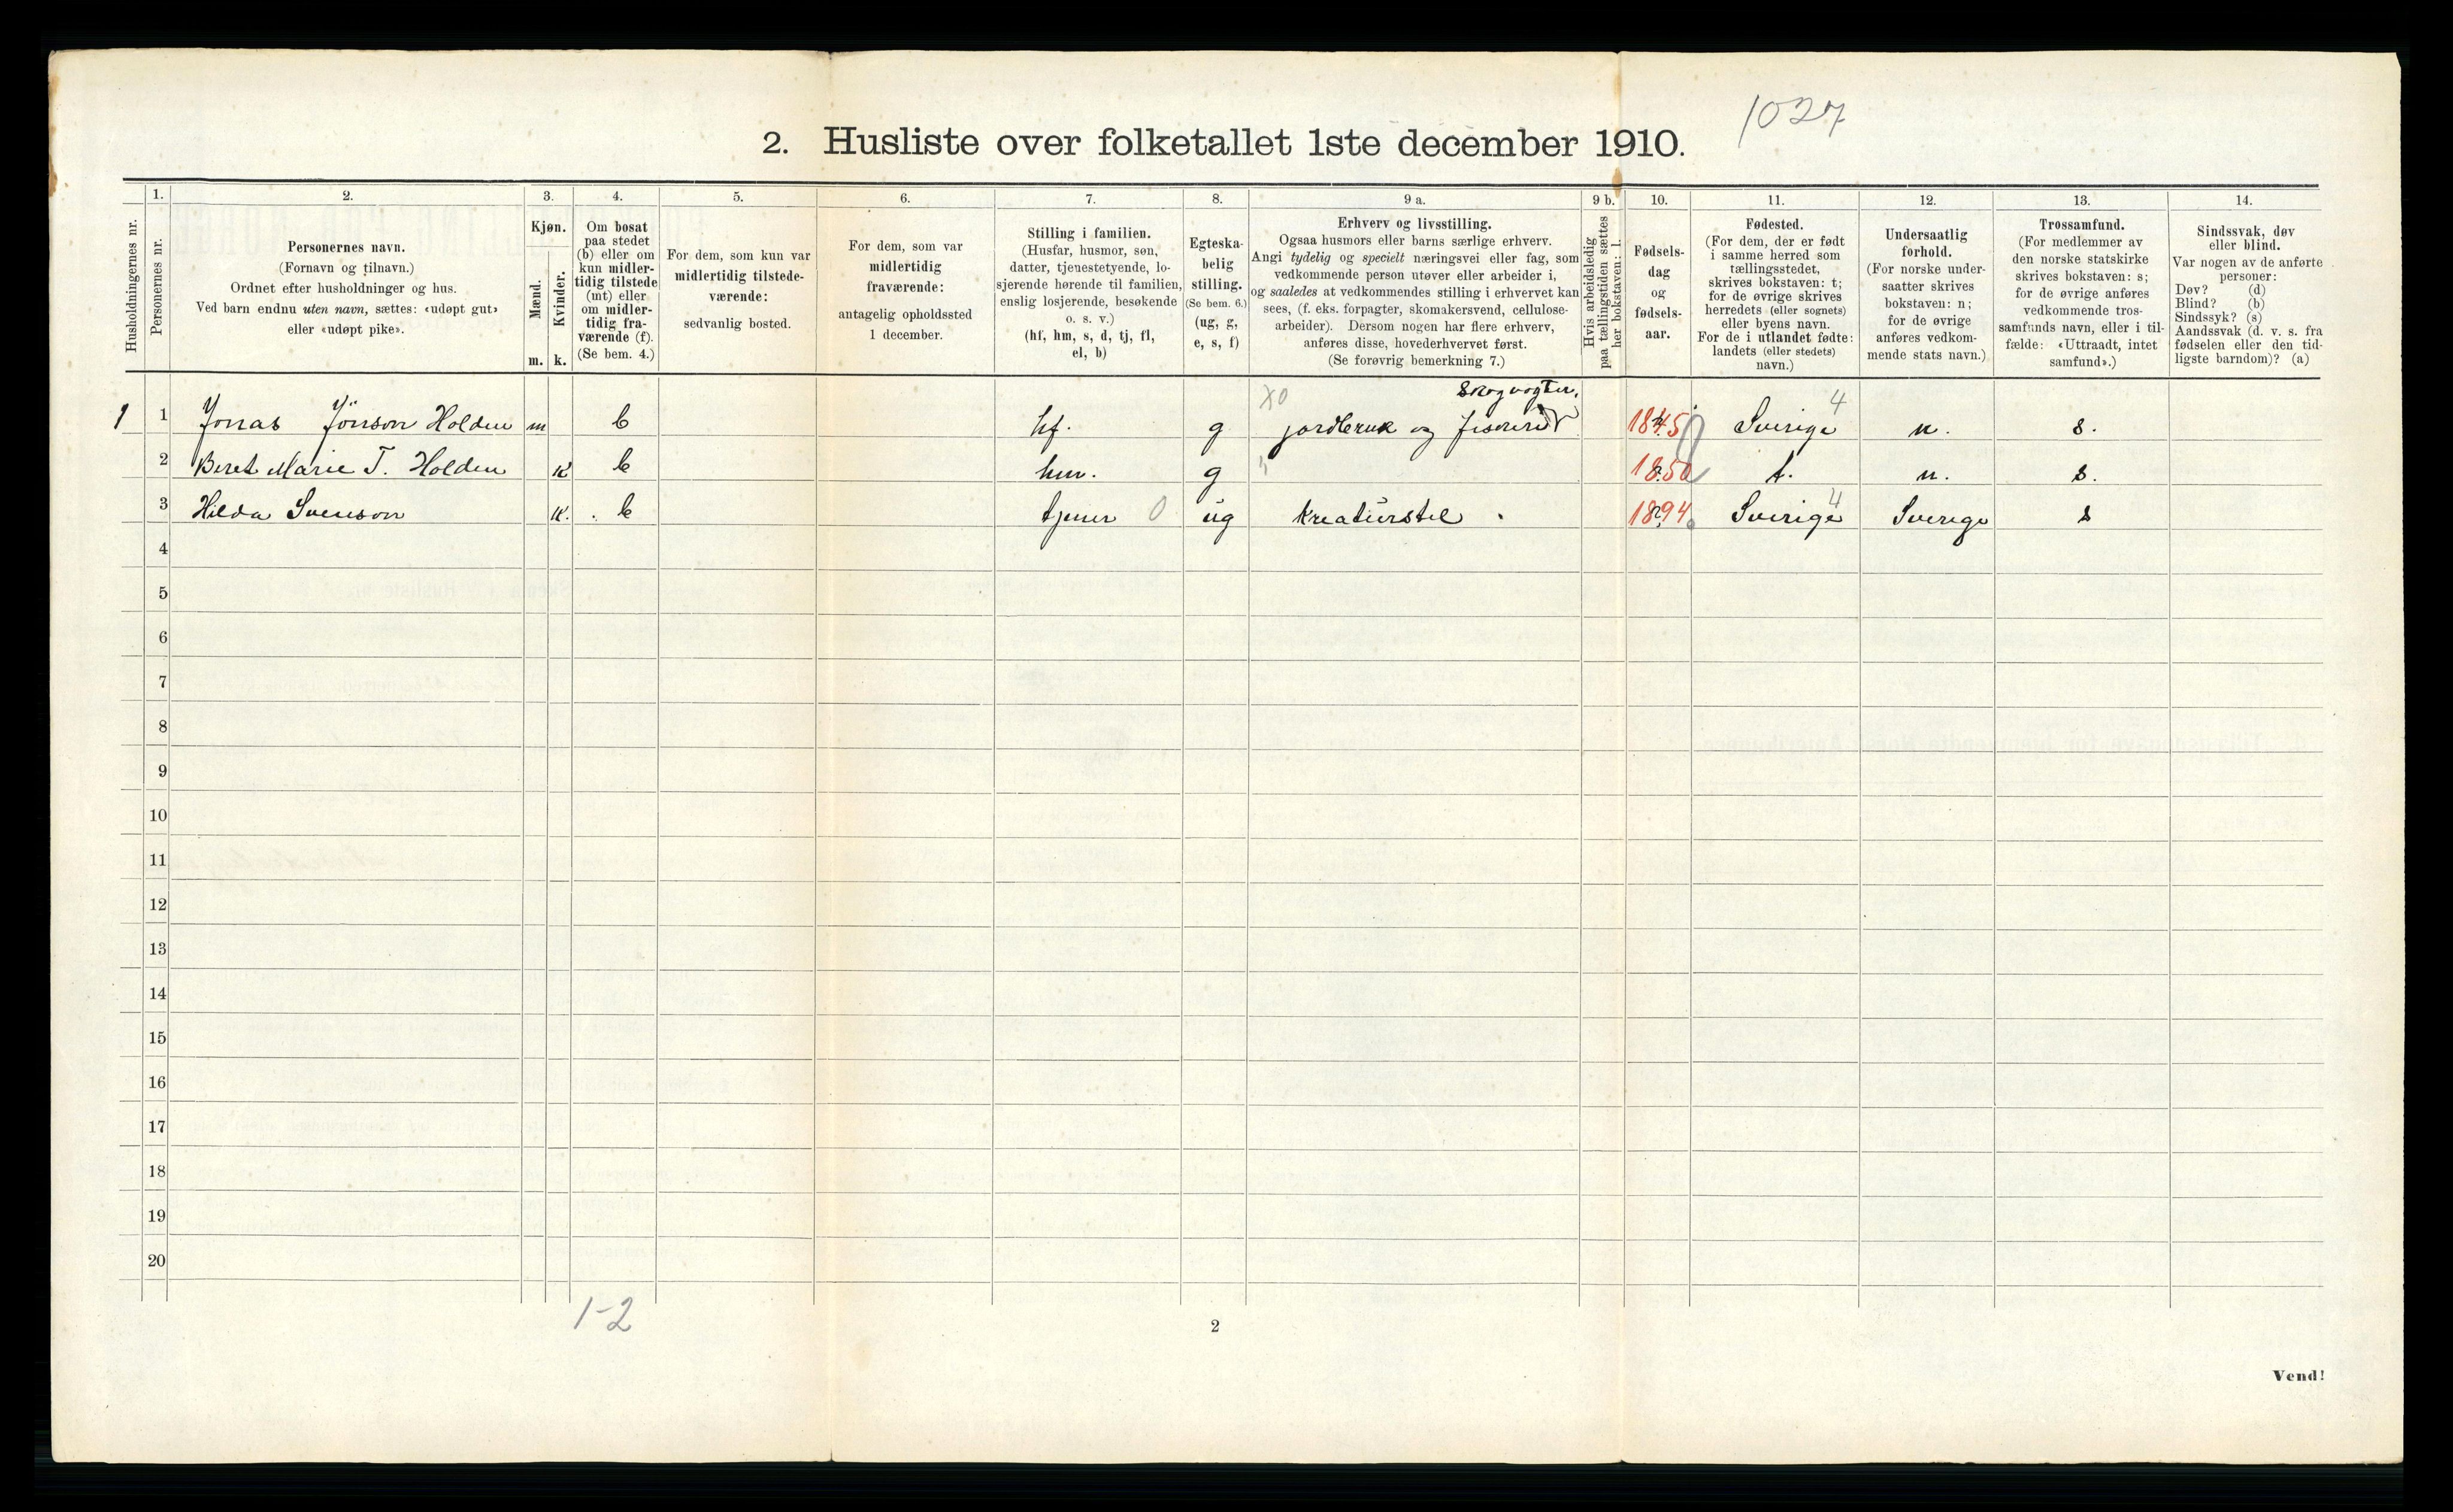 1027
2. Husliste over folketallet 1ste december 1910.
Husholdningernes nr.
1.
Personernes nr.
2.
Personernes navn.
(Fornavn og tilnavn.)
Ordnet efter husholdninger og hus.
Ved barn endnu uten navn, sættes: «udøpt gut»
eller «udøpt pike».
3.
Kjøn.
Mænd.
m.
Kvinder.
k.
4.
Om bosat
paa stedet
(b) eller om
kun midler-
tidig tilstede
(mt) eller
om midler-
tidig fra-
værende (f).
(Se bem. 4.)
5.
For dem, som kun var
midlertidig tilstede-
værende:
sedvanlig bosted.
6.
For dem, som var
midlertidig
fraværende:
antagelig opholdssted
1 december.
7.
Stilling i familien.
(Husfar, husmor, søn,
datter, tjenestetyende, lo-
sjerende hørende til familien,
enslig losjerende, besøkende
o. s. v.)
(hf, hm, s, d, tj, fl,
el, b)
8.
Egteska-
belig
stilling.
(Se bem. 6.)
(ug, g,
e, s, f)
9 a.
Erhverv og livsstilling.
Ogsaa husmors eller barns særlige erhverv.
Angi tydelig og specielt næringsvei eller fag, som
vedkommende person utøver eller arbeider i,
og saaledes at vedkommendes stilling i erhvervet kan
sees, (f. eks. forpagter, skomakersvend, cellulose-
arbeider). Dersom nogen har flere erhverv,
anføres disse, hovederhvervet først.
(Se forøvrig bemerkning 7.)
9 b.
Hvis arbeidsledig
paa tællingstiden sættes
her bokstaven: l.
10.
Fødsels-
dag
og
fødsels-
aar.
11.
Fødested.
(For dem, der er født
i samme herred som
tællingsstedet,
skrives bokstaven: t;
for de øvrige skrives
herredets (eller sognets)
eller byens navn.
For de i utlandet fødte:
landets (eller stedets)
navn.)
12.
Undersaatlig
forhold.
(For norske under-
saatter skrives
bokstaven: n;
for de øvrige
anføres vedkom-
mende stats navn.)
13.
Trossamfund.
(For medlemmer av
den norske statskirke
skrives bokstaven: s;
for de øvrige anføres
vedkommende tros-
samfunds navn, eller i til-
fælde: «Uttraadt, intet
samfund».)
14.
Sindssvak, døv
eller blind.
Var nogen av de anførte
personer:
Døv? (d)
Blind? (b)
Sindssyk? (s)
Aandssvak (d. v. s. fra
fødselen eller den tid-
ligste barndom)? (a)
X0 Skogvogter,
1 1 Jonas Jönson Holden m b hf. g jordbruk og fiskeri 1845 Sverige 4 n. s.
2 Beret Marie T. Holden k b hm. g " 1850 t. n. s.
3 Hilda Svenson k. b tjener 0 ug kreaturstel 1894 Sverige 4 Sverige s
4
5
6
7
8
9
10
11
12
13
14
15
16
17
18
19
20
1-2
2
Vend!